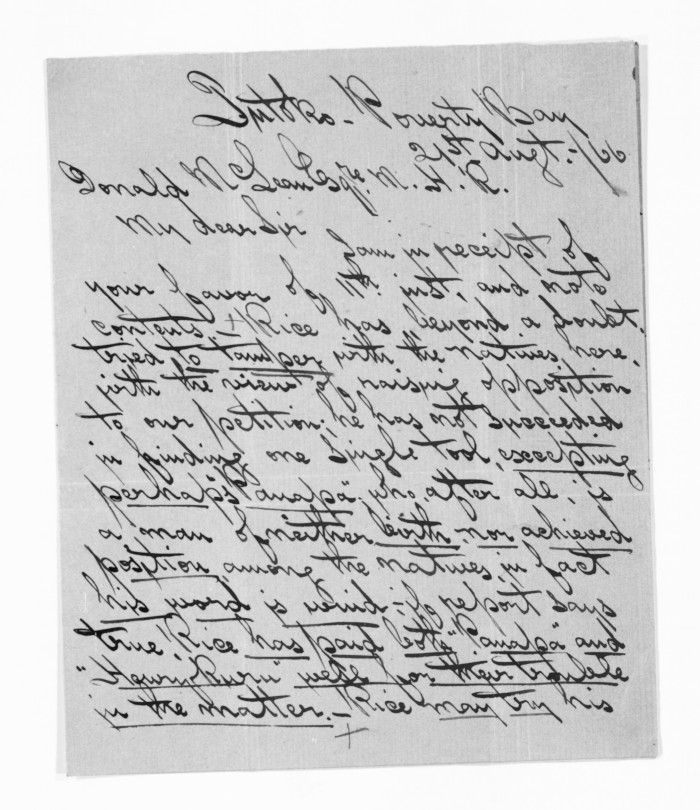 Poverty Bay
21st Augt:
Donald McLean Esqre. M.H.R.
My dear Sir
I am in receipt of
your favor of inst, and note
contents. — + Rice has, beyond a doubt,
tried to tamper with the natives here,
with the view of raising opposition
to our petition; he has not succeeded
in finding one single tool, excepting
perhaps "Panapa" who after all, is
a man of neither birth nor achieved
position, among the natives, in fact
his word is wind; if report says
true, Rice has paid both "Panapa" and
well for their trouble
in the matter. — Rice may try his
+